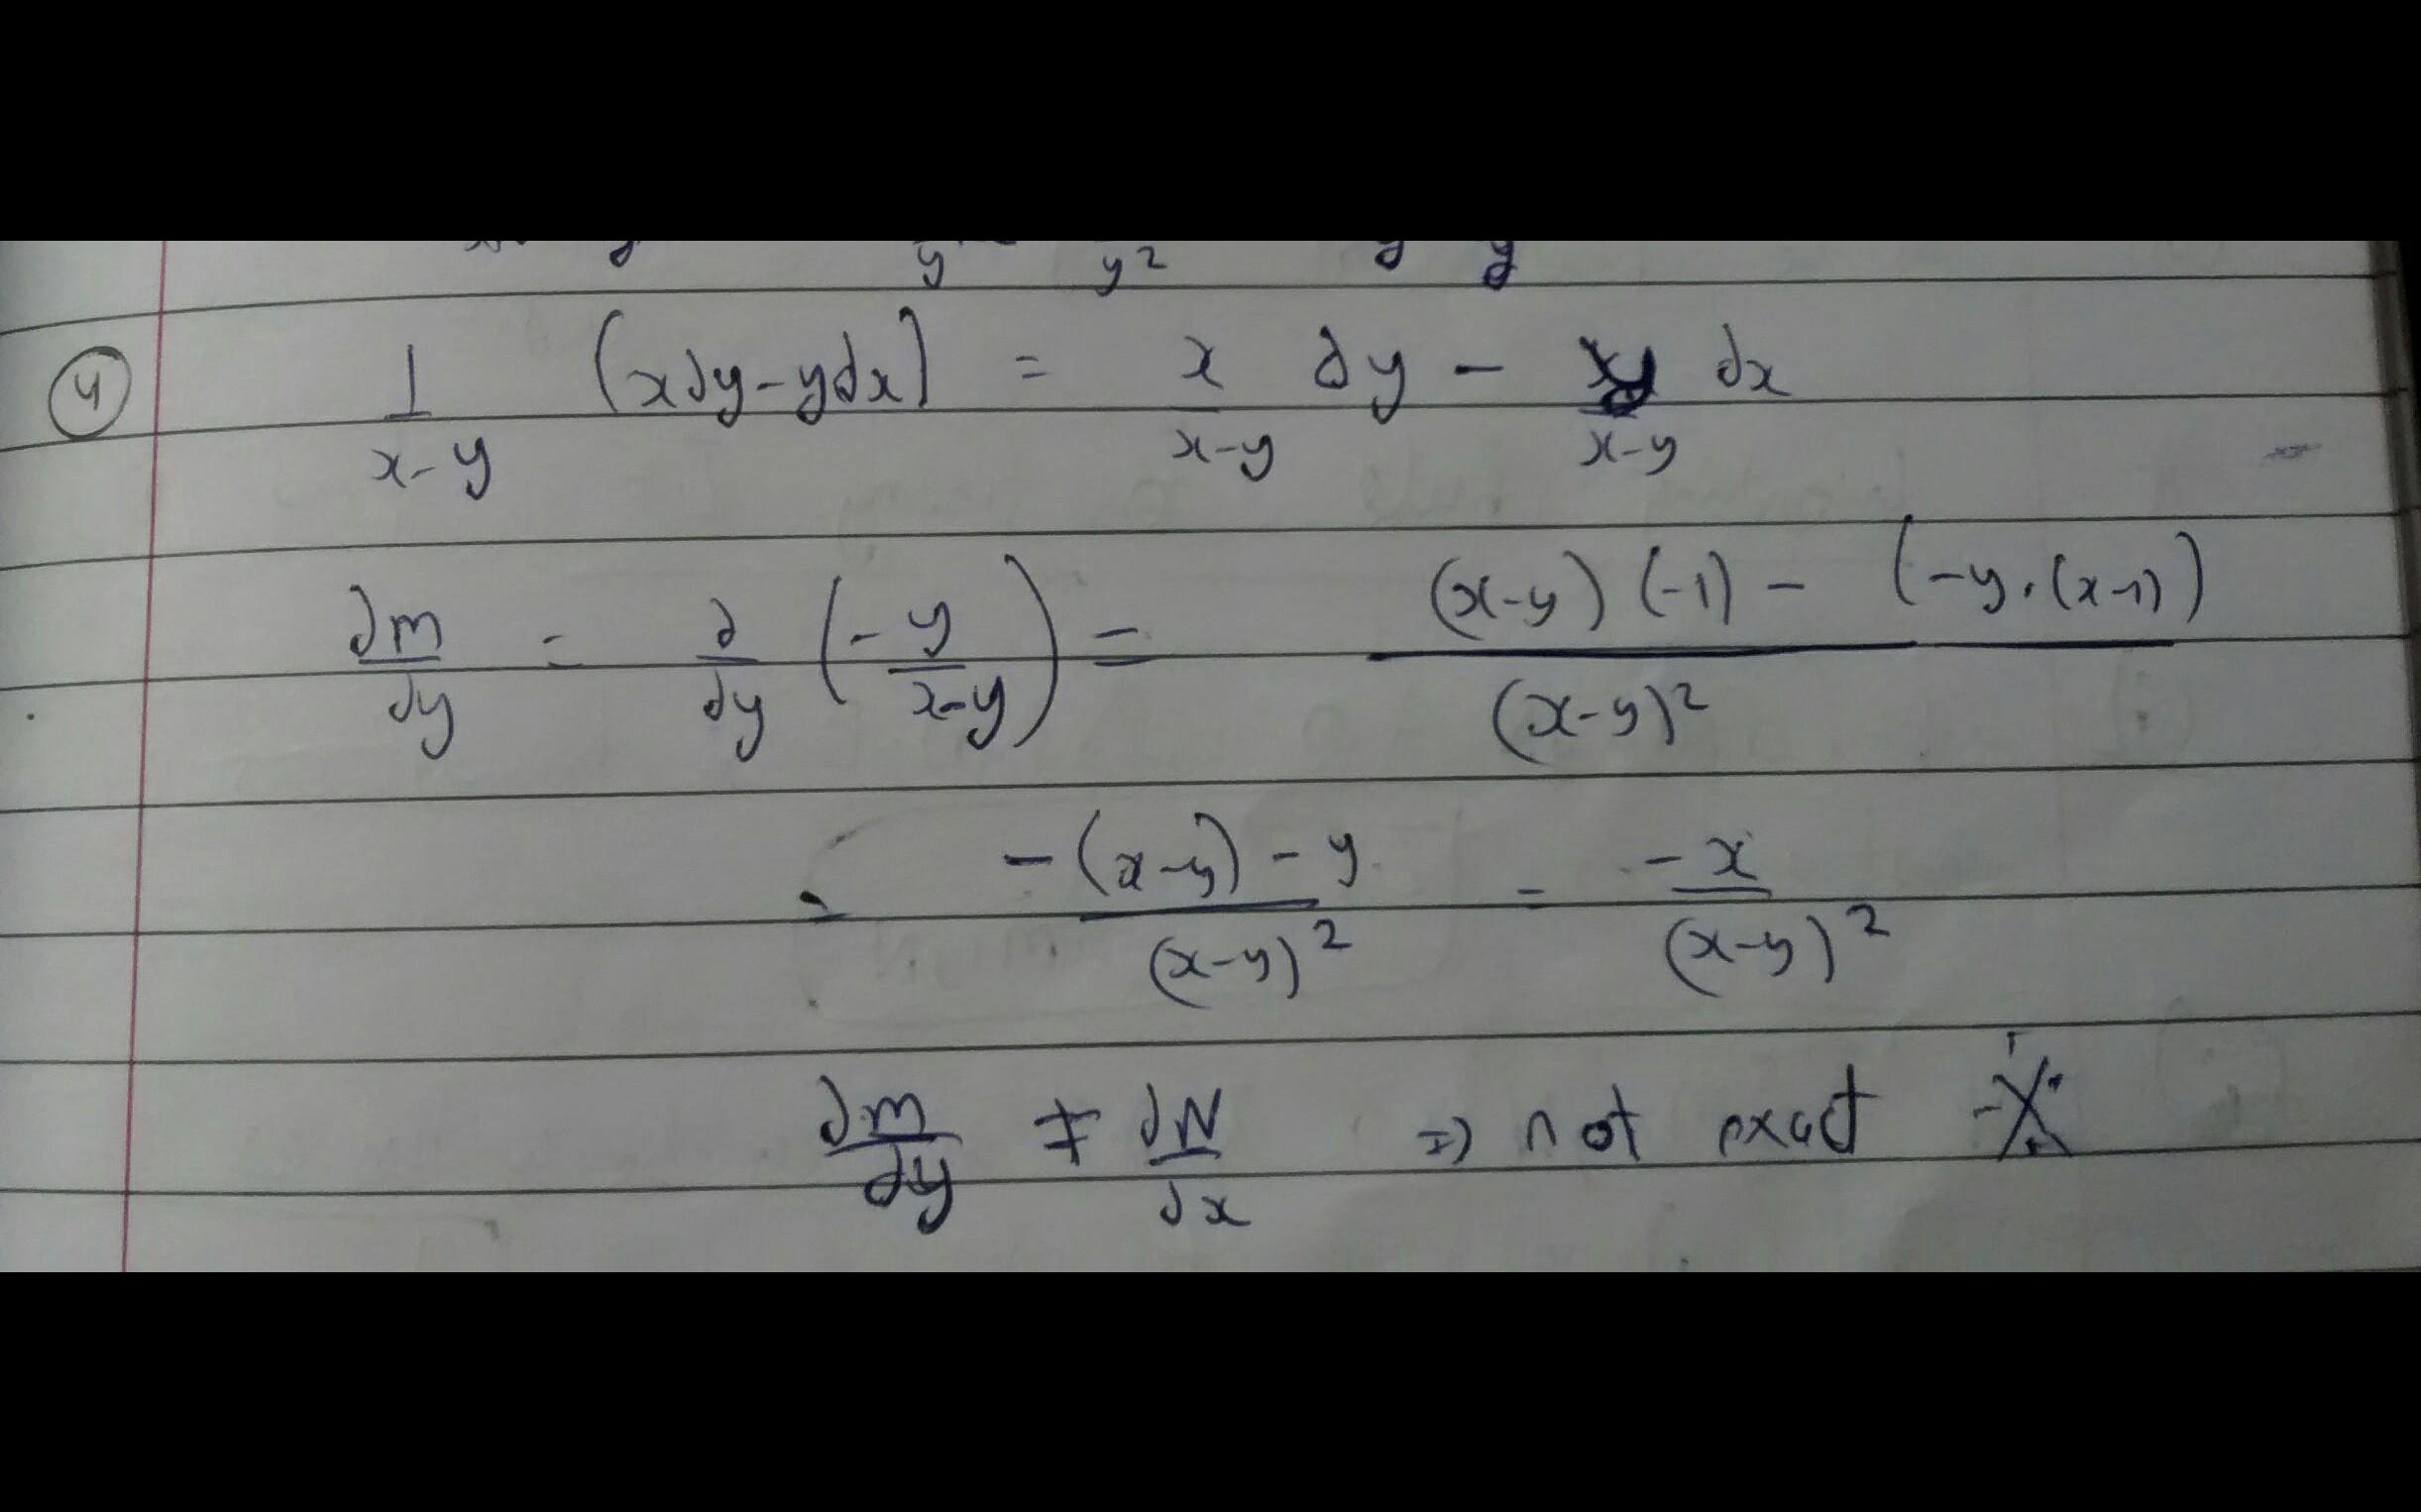 ④ 1/(x-y) (xdy-ydx) = x/(x-y) dy - y/(x-y) dx
∂m/∂y = ∂/∂y (-y/(x-y)) = ((x-y)(-1) - (-y.(x-1)))/(x-y)²
= (-(x-y)-y)/(x-y)² = -x/(x-y)²
∂m/∂y ≠ ∂N/∂x ⇒ not exact